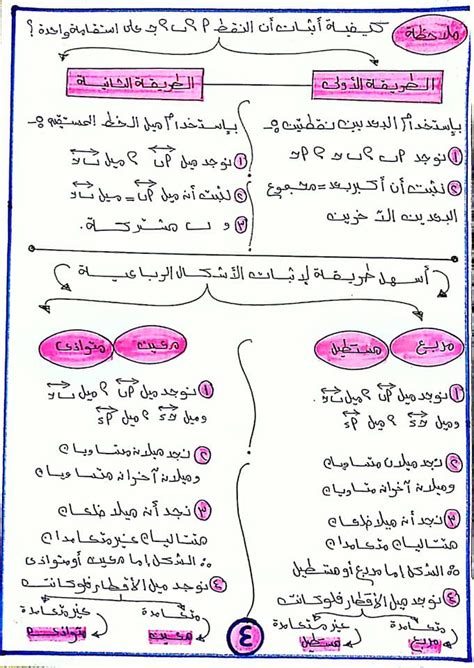 ملاحظة كيفية أثبات أن النقط P ، ب ، ج على استقامة واحدة ؟
الطريقة الأولى
بإستخدام البعد بين نقطتين
① نوجد P ب ، ب ج ، P ج
② نثبت أن أكبر بعد = مجموع
البعدين الآخرين
الطريقة الثانية
بإستخدام ميل الخط المستقيم
① نوجد ميل P ب ، ميل ب ج
② نثبت أن ميل P ب = ميل ب ج
③ و ب مشتركة .
أسهل طريقة لإثبات الأشكال الرباعية
مربع مستطيل
① نوجد ميل P ب ، ميل ب ج
وميل ج د ، ميل P د
② نجد ميلان متساويان
وميلان آخران متساويان
③ نجد أن ميلا ضلعان
متتاليان متعامدان
∴ الشكل إما مربع أو مستطيل
④ نوجد ميل الأقطار فلو كانت
متعامدة غير متعامدة
مربع مستطيل
معين متوازى
① نوجد ميل P ب ، ميل ب ج
وميل ج د ، ميل P د
② نجد ميلان متساويان
وميلان آخران متساويان
③ نجد أن ميلا ضلعان
متتاليان غير متعامدان
∴ الشكل إما معين أو متوازى
④ نوجد ميل الأقطار فلو كانت
متعامدة غير متعامدة
معين متوازى
٤